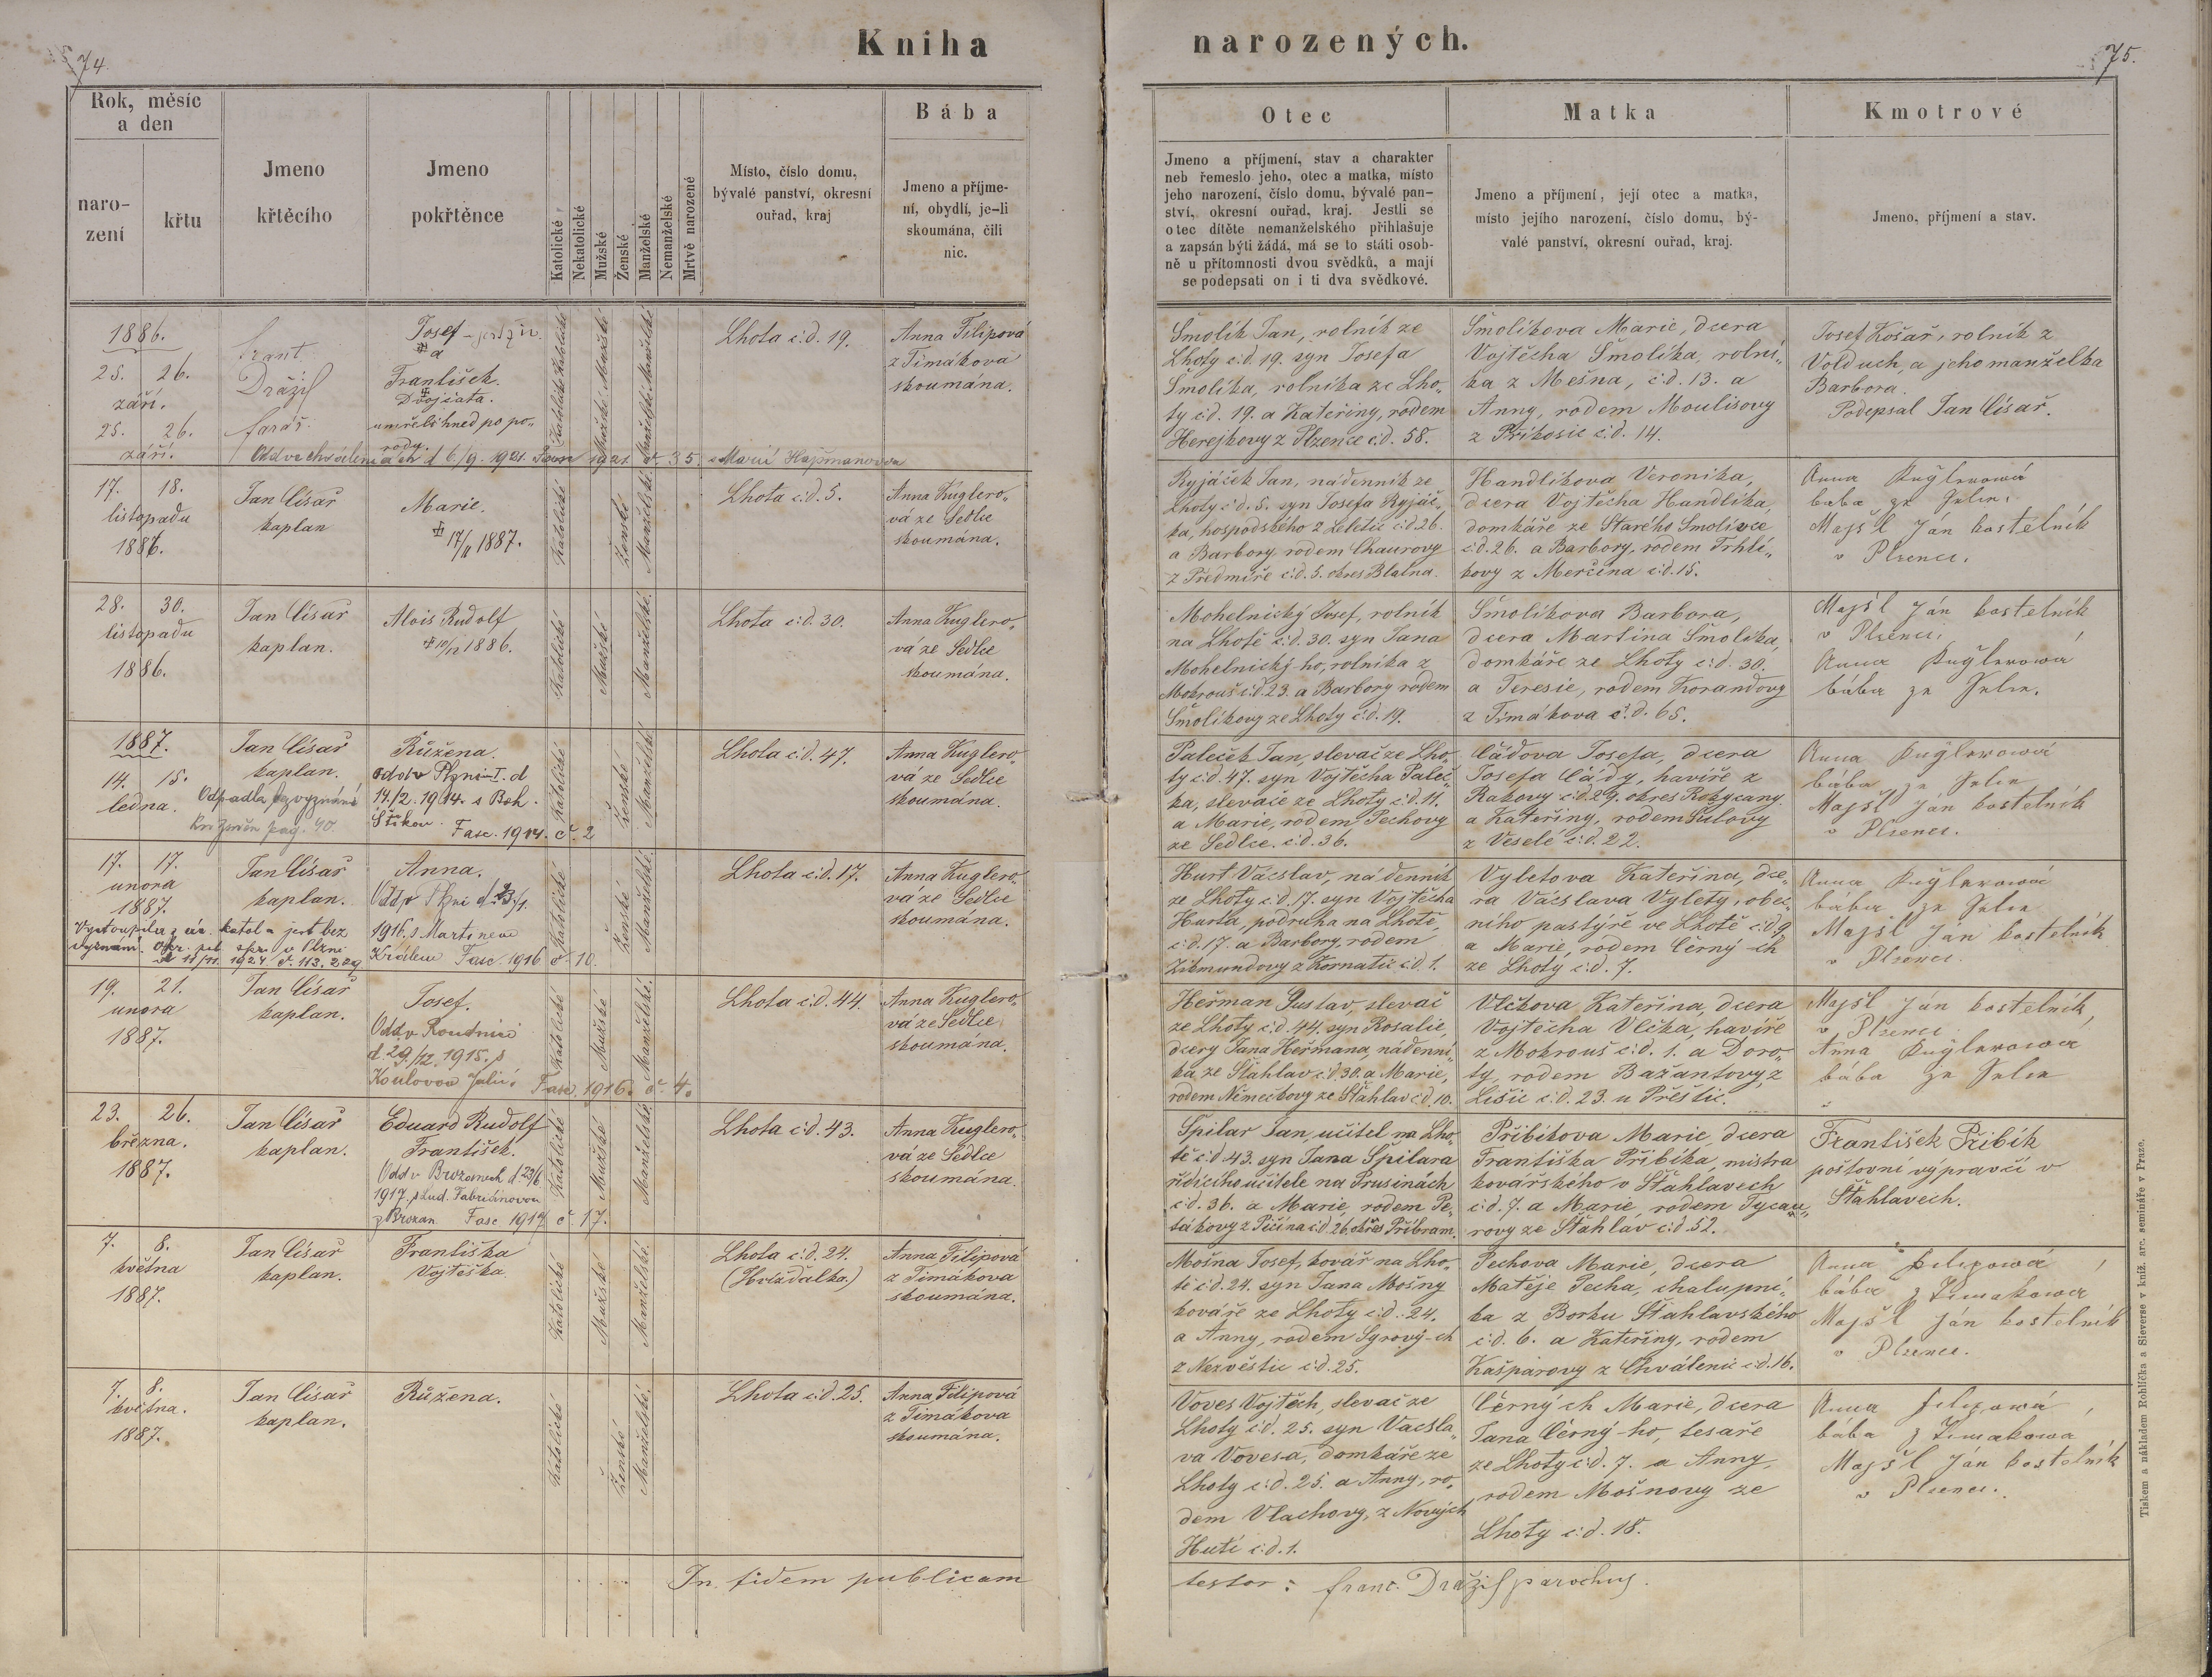 74.
Kniha
narozených.
75.
Rok, měsíc
a den
naro-
zení
křtu
Jmeno
křtěcího
Jmeno
pokřtěnce
Katolické
Nekatolické
Mužské
Ženské
Manželské
Nemanželské
Mrtvě narozené
Místo, číslo domu,
bývalé panství, okresní
ouřad, kraj
Bába
Jmeno a příjme-
ní, obydlí, je-li
skoumána, čili
nic.
Otec
Jmeno a příjmení, stav a charakter
neb řemeslo jeho, otec a matka, místo
jeho narození, číslo domu, bývalé pan-
ství, okresní ouřad, kraj. Jestli se
otec dítěte nemanželského přihlašuje
a zapsán býti žádá, má se to státi osob-
ně u přítomnosti dvou svědků, a mají
se podepsati on i ti dva svědkové.
Matka
Jmeno a příjmení, její otec a matka,
místo jejího narození, číslo domu, bý-
valé panství, okresní ouřad, kraj.
Kmotrové
Jmeno, příjmení a stav.
1886.
25. 26.
září.
25. 26.
září.
Frant.
Dražil
farář.
Josef
a
František.
Dvojčata.
umřeli hned po po-
rodu.
Katolické Katolické
Mužské Mužské
Manželské Manželské
Lhota č:d. 19.
Anna Filipová
z Timákova
skoumána.
Smolík Jan, rolník ze
Lhoty č:d. 19. syn Josefa
Smolíka, rolníka ze Lho-
ty č:d. 19. a Kateřiny, rodem
Herejkovy z Plzence č:d. 58.
Smolíkova Marie, dcera
Vojtěcha Smolíka, rolní-
ka z Mešna, č:d. 13. a
Anny, rodem Moulisovy
z Příkosic č:d. 14.
Josef Košař, rolník z
Volduch, a jeho manželka
Barbora.
Podepsal Jan Císař.
d 6./9. 1921. 1921. č. 35.
17. 18.
listopadu
1886.
Jan Císař
kaplan
Marie.
17/11 1887.
Katolické
Ženské
Manželské
Lhota č:d. 5.
Anna Kuglero-
vá ze Sedlce
skoumána.
Ryjáček Jan, nádenník ze
Lhoty č:d. 5. syn Josefa Ryjáč-
ka, hospodského z Želetic č:d. 26.
a Barbory, rodem Chaurovy
z Předmíře č:d. 5. okres Blatna.
Handlíkova Veronika,
dcera Vojtěcha Handlíka,
domkáře ze Starého Smolivce
č:d. 26. a Barbory, rodem Trhlí-
kovy z Merčína č:d. 15.
Anna Kuglerowá
bába ze Selce.
Majšl Ján kostelník
v Plzenci.
28. 30.
listopadu
1886.
Jan Císař
kaplan.
Alois Rudolf
10/12 1886.
Katolické
Mužské
Manželské
Lhota č:d. 30.
Anna Kuglero-
vá ze Sedlce
skoumána.
Mohelnický Josef, rolník
na Lhotě č:d. 30. syn Jana
Mohelnický-ho, rolníka z
Mokrouš č:d. 23. a Barbory rodem
Smolíkovy ze Lhoty č:d. 19.
Smolíkova Barbora,
dcera Martina Smolíka,
domkáře ze Lhoty č:d. 30.
a Teresie, rodem Korandovy
z Timákova č.d. 65.
Majšl Ján kostelník
v Plzenci.
Anna Kuglerowá
bába ze Selce.
1887.
14. 15.
ledna.
Jan Císař
kaplan.
Odpadla, bezvyznání
pag. 40.
Růžena.
odd. v Plzni I. d
14./2. 1914. s Boh.
Fasc. 1914. č. 2
Katolické
Ženské
Manželské
Lhota č:d. 47.
Anna Kuglero-
vá ze Sedlce
skoumána.
Paleček Jan, slevač ze Lho-
ty č:d. 47. syn Vojtěcha Paleč-
ka, slevače ze Lhoty č:d. 11.
a Marie, rodem Pechovy
ze Sedlce. č:d. 36.
Čádova Josefa, dcera
Josefa Čády, havíře z
Rakovy č:d. 29. okres Rokycany.
a Kateřiny, rodem Šulovy
z Veselé č:d. 22.
Anna Kuglerowá
bába ze Selce
Majšl Ján kostelník
v Plzenci.
17. 17.
unora
1887.
Jan Císař
kaplan.
Vystoupila z círk. katol. a jest bez
vyznání. Okr. pol. spr. v Plzni
1924. č. 113.229
Anna.
Odd. v Plzni
1916. s Martinem
Králem Fasc. 1916 č. 10.
Katolické
Ženské
Manželské.
Lhota č:d. 17.
Anna Kuglero-
vá ze Sedlce
skoumána.
Hurt Vácslav, nádenník
ze Lhoty č:d. 17. syn Vojtěcha
Hurta, podruha na Lhotě,
č:d. 17. a Barbory, rodem
Zikmundovy z Kornatic č:d. 1.
Vyletova Kateřina, dce-
ra Vácslava Vylety, obec-
ního pastýře ve Lhotě č:d 9,
a Marie, rodem Černý-ch
ze Lhoty č:d. 7.
Anna Kuglerowá
bába ze Selce
Majšl Ján kostelník
v Plzenci.
19. 21.
unora
1887.
Jan Císař
kaplan.
Josef.
Odd. v Roudnici
d. 29./12. 1915. s
Koulovou Julií
Fasc. 1916. č. 4.
Katolické
Mužské
Manželské.
Lhota č:d. 44.
Anna Kuglero-
vá ze Sedlce
skoumána.
Heřman Gustav, slevač
ze Lhoty č:d. 44. syn Rosalie,
dcery Jana Heřmana, nádenní-
ka ze Šťahlav č:d. 30. a Marie,
rodem Němečkovy ze Šťahlav č:d. 10.
Vlčkova Kateřina, dcera
Vojtěcha Vlčka, havíře
z Mokrouš č:d. 1. a Doro-
ty, rodem Bažantovy, z
Lišic č:d. 23. u Přeštic.
Majšl Ján kostelník,
v Plzenci
Anna Kuglerowá
bába ze Selce
23. 26.
března.
1887.
Jan Císař
kaplan.
Eduard Rudolf
František.
Odd. v Brozanech d. 23/6
1917. s Lud. Fabriánovou
z Brozan. Fasc 1917 č. 17.
Katolické
Mužské
Manželské
Lhota č:d. 43.
Anna Kuglero-
vá ze Sedlce
skoumána.
Špilar Jan, učitel na Lho-
tě č:d 43. syn Jana Špilara
řídícího učitele na Prusinách
č:d. 36. a Marie, rodem Pe-
tákovy z Pičína č:d. 26. okres Příbram.
Přibíkova Marie, dcera
Františka Přibíka, mistra
kovářského v Šťahlavech
č:d. 7. a Marie, rodem Tycau-
rovy ze Šťahlav č:d 52.
František Pribík
poštovní výpravčí v
Šťahlavech.
7. 8.
května
1887.
Jan Císař
kaplan.
Františka
Vojtěška.
Katolické
Mužské
Manželské.
Lhota č:d. 24.
(Hvížďalka.)
Anna Filipová
z Timákova
skoumána.
Mošna Josef, kovář na Lho-
tě č:d. 24. syn Jana Mošny
kováře ze Lhoty č:d. 24.
a Anny, rodem Syrový-ch
z Nezvěstic č:d. 25.
Pechova Marie, dcera
Matěje Pecha, chalupní-
ka z Borku Šťahlavského
č:d. 6. a Kateřiny, rodem
Kašparovy z Chválenic č:d. 16.
Anna Filipowá,
bába z Timakowa
Majšl Ján kostelník
v Plzenci.
7. 8.
května.
1887.
Jan Císař
kaplan.
Růžena.
Katolické
Ženské
Manželské.
Lhota č:d. 25.
Anna Filipová
z Timákova
skoumána.
Voves Vojtěch, slevač ze
Lhoty č:d. 25. syn Vácsla-
va Vovesa, domkáře ze
Lhoty č:d. 25. a Anny, ro-
dem Vlachovy, z Nových
Hutí č:d. 1.
Černý-ch Marie, dcera
Jana Černý-ho, tesaře
ze Lhoty č:d. 7. a Anny,
rodem Mošnovy ze
Lhoty č:d. 18.
Anna Filipowá,
bába z Timakowa
Majšl Ján kostelník
v Plzenci.
In fidem publicam
testor: Franc. Dražil parochus.
Tiskem a nákladem Rohlíčka a Sieverse v kníž. arc. semináře v Praze.